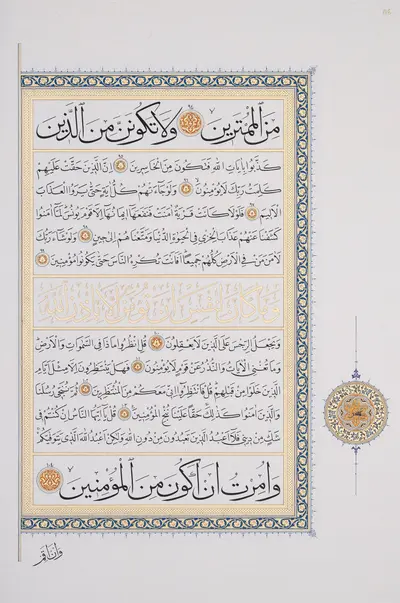 مِنَ الْمُمْتَرِينَ وَلَا تَكُونَنَّ مِنَ الَّذِينَ
كَذَّبُوا بِاٰيَاتِ اللّٰهِ فَتَكُونَ مِنَ الْخَاسِرِينَ اِنَّ الَّذِينَ حَقَّتْ عَلَيْهِمْ
كَلِمَتُ رَبِّكَ لَا يُؤْمِنُونَ وَلَوْ جَاءَتْهُمْ كُلُّ اٰيَةٍ حَتّٰى يَرَوُا الْعَذَابَ
الْاَلِيمَ فَلَوْلَا كَانَتْ قَرْيَةٌ اٰمَنَتْ فَنَفَعَهَا اِيمَانُهَا اِلَّا قَوْمَ يُونُسَ لَمَّا اٰمَنُوا
كَشَفْنَا عَنْهُمْ عَذَابَ الْخِزْيِ فِي الْحَيٰوةِ الدُّنْيَا وَمَتَّعْنَاهُمْ اِلٰى حِينٍ وَلَوْ شَاءَ رَبُّكَ
لَاٰمَنَ مَنْ فِي الْاَرْضِ كُلُّهُمْ جَمِيعًا اَفَاَنْتَ تُكْرِهُ النَّاسَ حَتّٰى يَكُونُوا مُؤْمِنِينَ
وَمَا كَانَ لِنَفْسٍ اَنْ تُؤْمِنَ اِلَّا بِاِذْنِ اللّٰهِ
وَيَجْعَلُ الرِّجْسَ عَلَى الَّذِينَ لَا يَعْقِلُونَ قُلِ انْظُرُوا مَاذَا فِي السَّمٰوَاتِ وَالْاَرْضِ
وَمَا تُغْنِي الْاٰيَاتُ وَالنُّذُرُ عَنْ قَوْمٍ لَا يُؤْمِنُونَ فَهَلْ يَنْتَظِرُونَ اِلَّا مِثْلَ اَيَّامِ
الَّذِينَ خَلَوْا مِنْ قَبْلِهِمْ قُلْ فَانْتَظِرُوا اِنِّي مَعَكُمْ مِنَ الْمُنْتَظِرِينَ ثُمَّ نُنَجِّي رُسُلَنَا
وَالَّذِينَ اٰمَنُوا كَذٰلِكَ حَقًّا عَلَيْنَا نُنْجِ الْمُؤْمِنِينَ قُلْ يَا اَيُّهَا النَّاسُ اِنْ كُنْتُمْ فِي
شَكٍّ مِنْ دِينِي فَلَا اَعْبُدُ الَّذِينَ تَعْبُدُونَ مِنْ دُونِ اللّٰهِ وَلٰكِنْ اَعْبُدُ اللّٰهَ الَّذِي يَتَوَفّٰيكُمْ
وَاُمِرْتُ اَنْ اَكُونَ مِنَ الْمُؤْمِنِينَ
وَاَنْ اَقِمْ